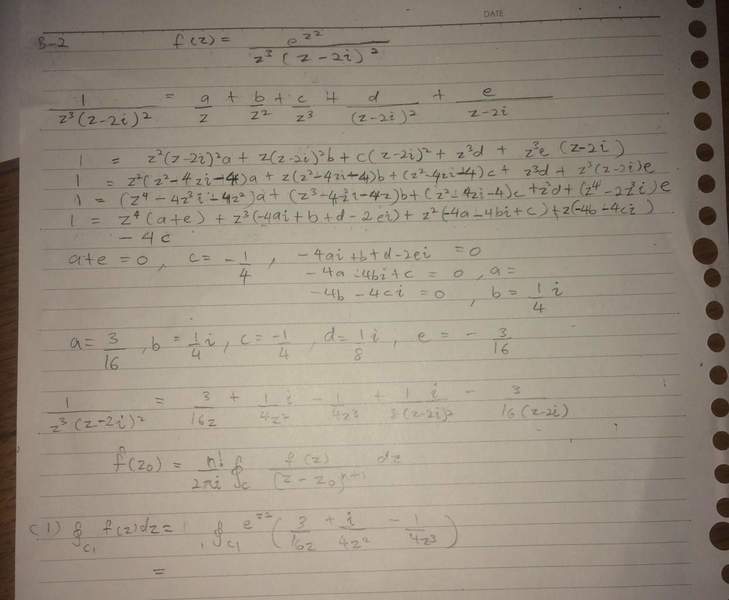 DATE
B-2 f(z) = e^{z^2} / z^3 (z-2i)^2
1 / z^3(z-2i)^2 = a/z + b/z^2 + c/z^3 + d/(z-2i)^2 + e/z-2i
1 = z^2(z-2i)^2a + z(z-2i)^2b + c(z-2i)^2 + z^3d + z^3e (z-2i)
1 = z^2(z^2-4zi-4)a + z(z^2-4zi-4)b + (z^2-4zi-4)c + z^3d + z^3(z-2i)e
1 = (z^4 - 4z^3i - 4z^2)a + (z^3-4z^2i-4z)b + (z^2-4zi-4)c + z^3d + (z^4-2z^3i)e
1 = z^4(a+e) + z^3(-4ai+b+d-2ei) + z^2(-4a-4bi+c) + z(-4b-4ci)
- 4c
a+e = 0, c = -1/4, -4ai+b+d-2ei = 0
-4a-4bi+c = 0, a =
-4b-4ci = 0, b = 1/4 i
a = 3/16, b = 1/4 i, c = -1/4, d = 1/8 i, e = - 3/16
1 / z^3(z-2i)^2 = 3/16z + 1/4z^2 i - 1/4z^3 + 1 i/8(z-2i)^2 - 3/16(z-2i)
f(z0) = n!/2πi ∮c f(z)/(z-z0)^{n+1} dz
(1) ∮c1 f(z)dz = ∮c1 e^{z^2} (3/16z + i/4z^2 - 1/4z^3)
=